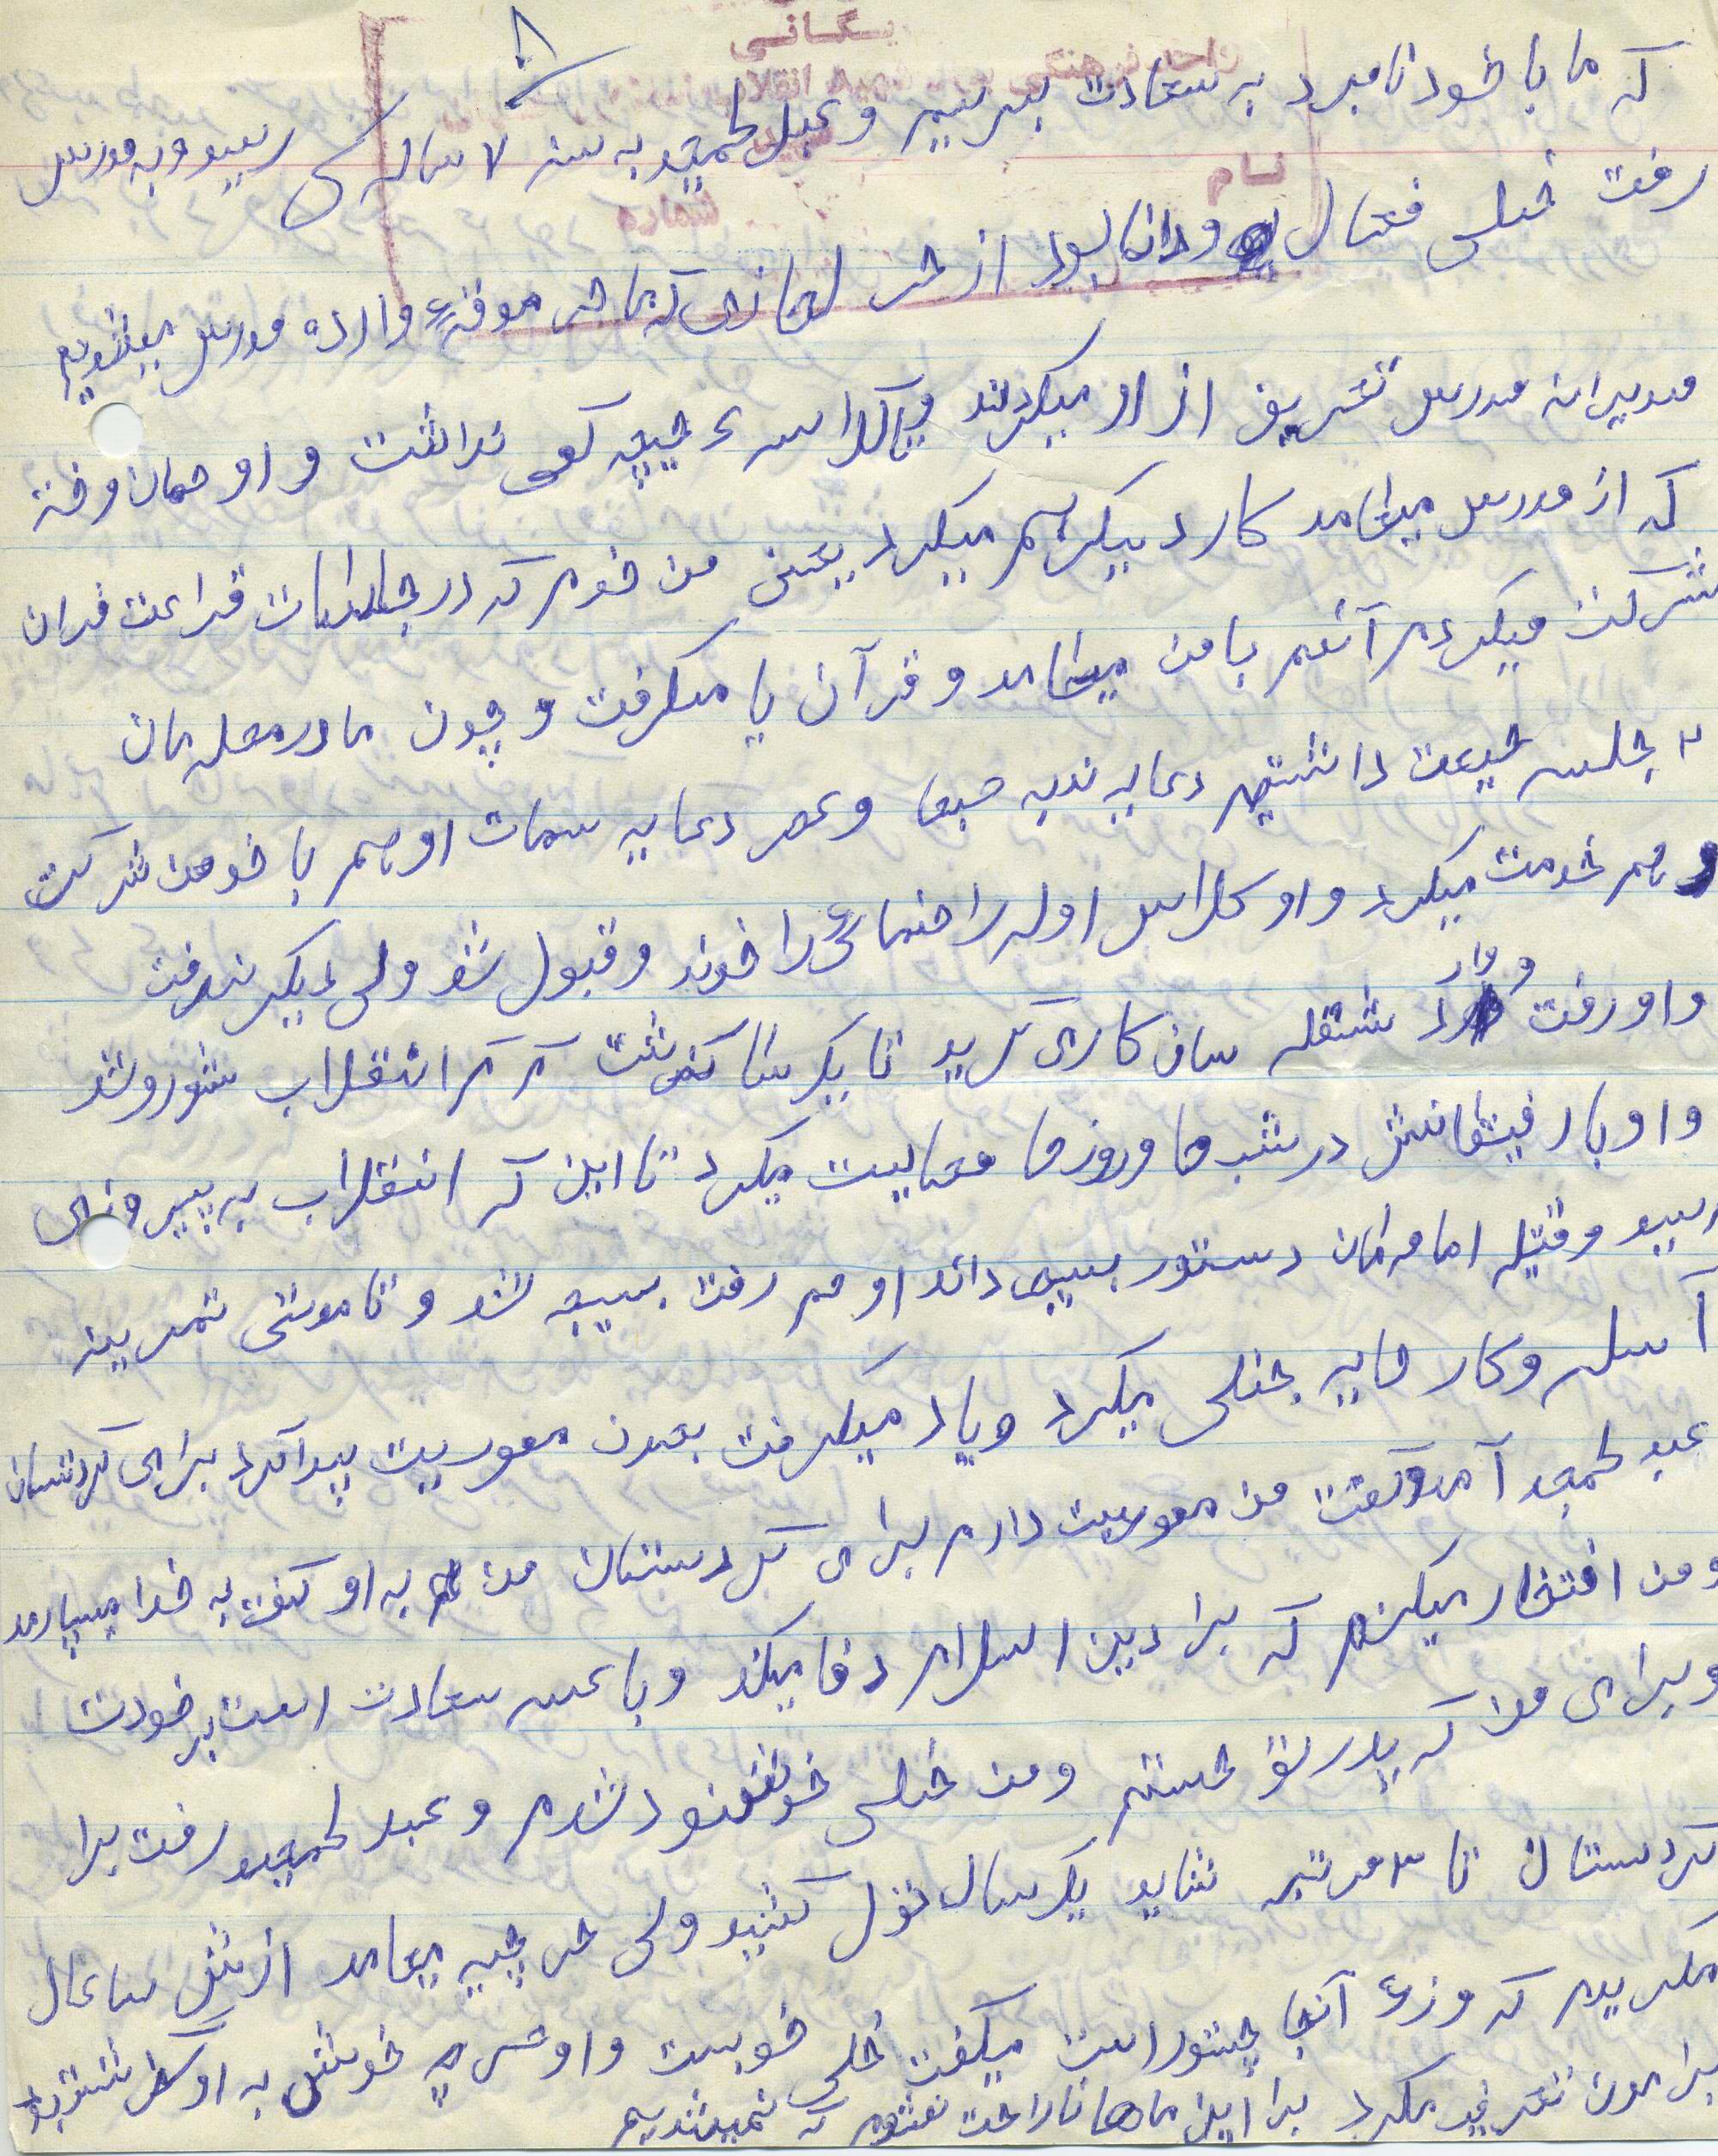 ۸
یگانی
واحد فرهنگی بنیاد شهید انقلاب
نام
شماره
که ما با خود نامبرد به سعادت برسیم و عبدلحمید به سن ۷ سالگی رسید و به مدرس
رفت خیلی فعال و دانا بود از هر لحاظی که ما هر موقع وارده مدرس میشدیم
مدیرانه مدرس تعریف از او میکردند و کلاس هیچ کمی نداشت و او همان وخته
که از مدرس میامد کار دیگر هم میکرد یعنی من خودم که در جلسات قراعت قران
شرکت میکردم آنهم با من میامد و قرآن یا میگرفت و چون ما در محله مان
۲ جلسه جمعت داشتیم دعایه ندبه صبها و عصر دعایه سمات او هم با خودمن شرکت
و هم خدمت میکرد و او کلاس اوله راهنمایی را خوند و قبول شد ولی دیگر نرفت
و او رفت و وارد شغله سان کاری گردید تا یک سال گذشت که که انقلاب شورو شد
و او با رفیقانش در شب ها و روز ها فعالیت میکرد تا این که انقلاب به پیروزی
رسید وقتیکه امام مان دستور بسیج دادند او هم رفت بسیج شد و تا مدتی تمرینه
آسله و کار هایه جنگی میکرد و یاد میگرفت بعدن معموریت پیدا کرد برای کردستان
عبدلحمید آمد و گفت من معموریت دارم برای کردستان من به او گفت به خدا میسپارمد
و من افتخار میکنم که برا دین اسلام دفا میکند و باعس سعادت است بر خودت
و برای من که پدر تو هستم و من خیلی خوشنود شدم و عبدلحمید رفت برا
کردستان تا ۳ مرتبه شاید یک سال تول کشید ولی هر چی میامد ازش ساعال
میکردیم که وزع آنجا چتور است میگفت خیلی خوبست و او هر چه خودش به او گذشته بود
برامون تعریف میکرد برا این ما ها ناراحت نشدم که نمیشدیم